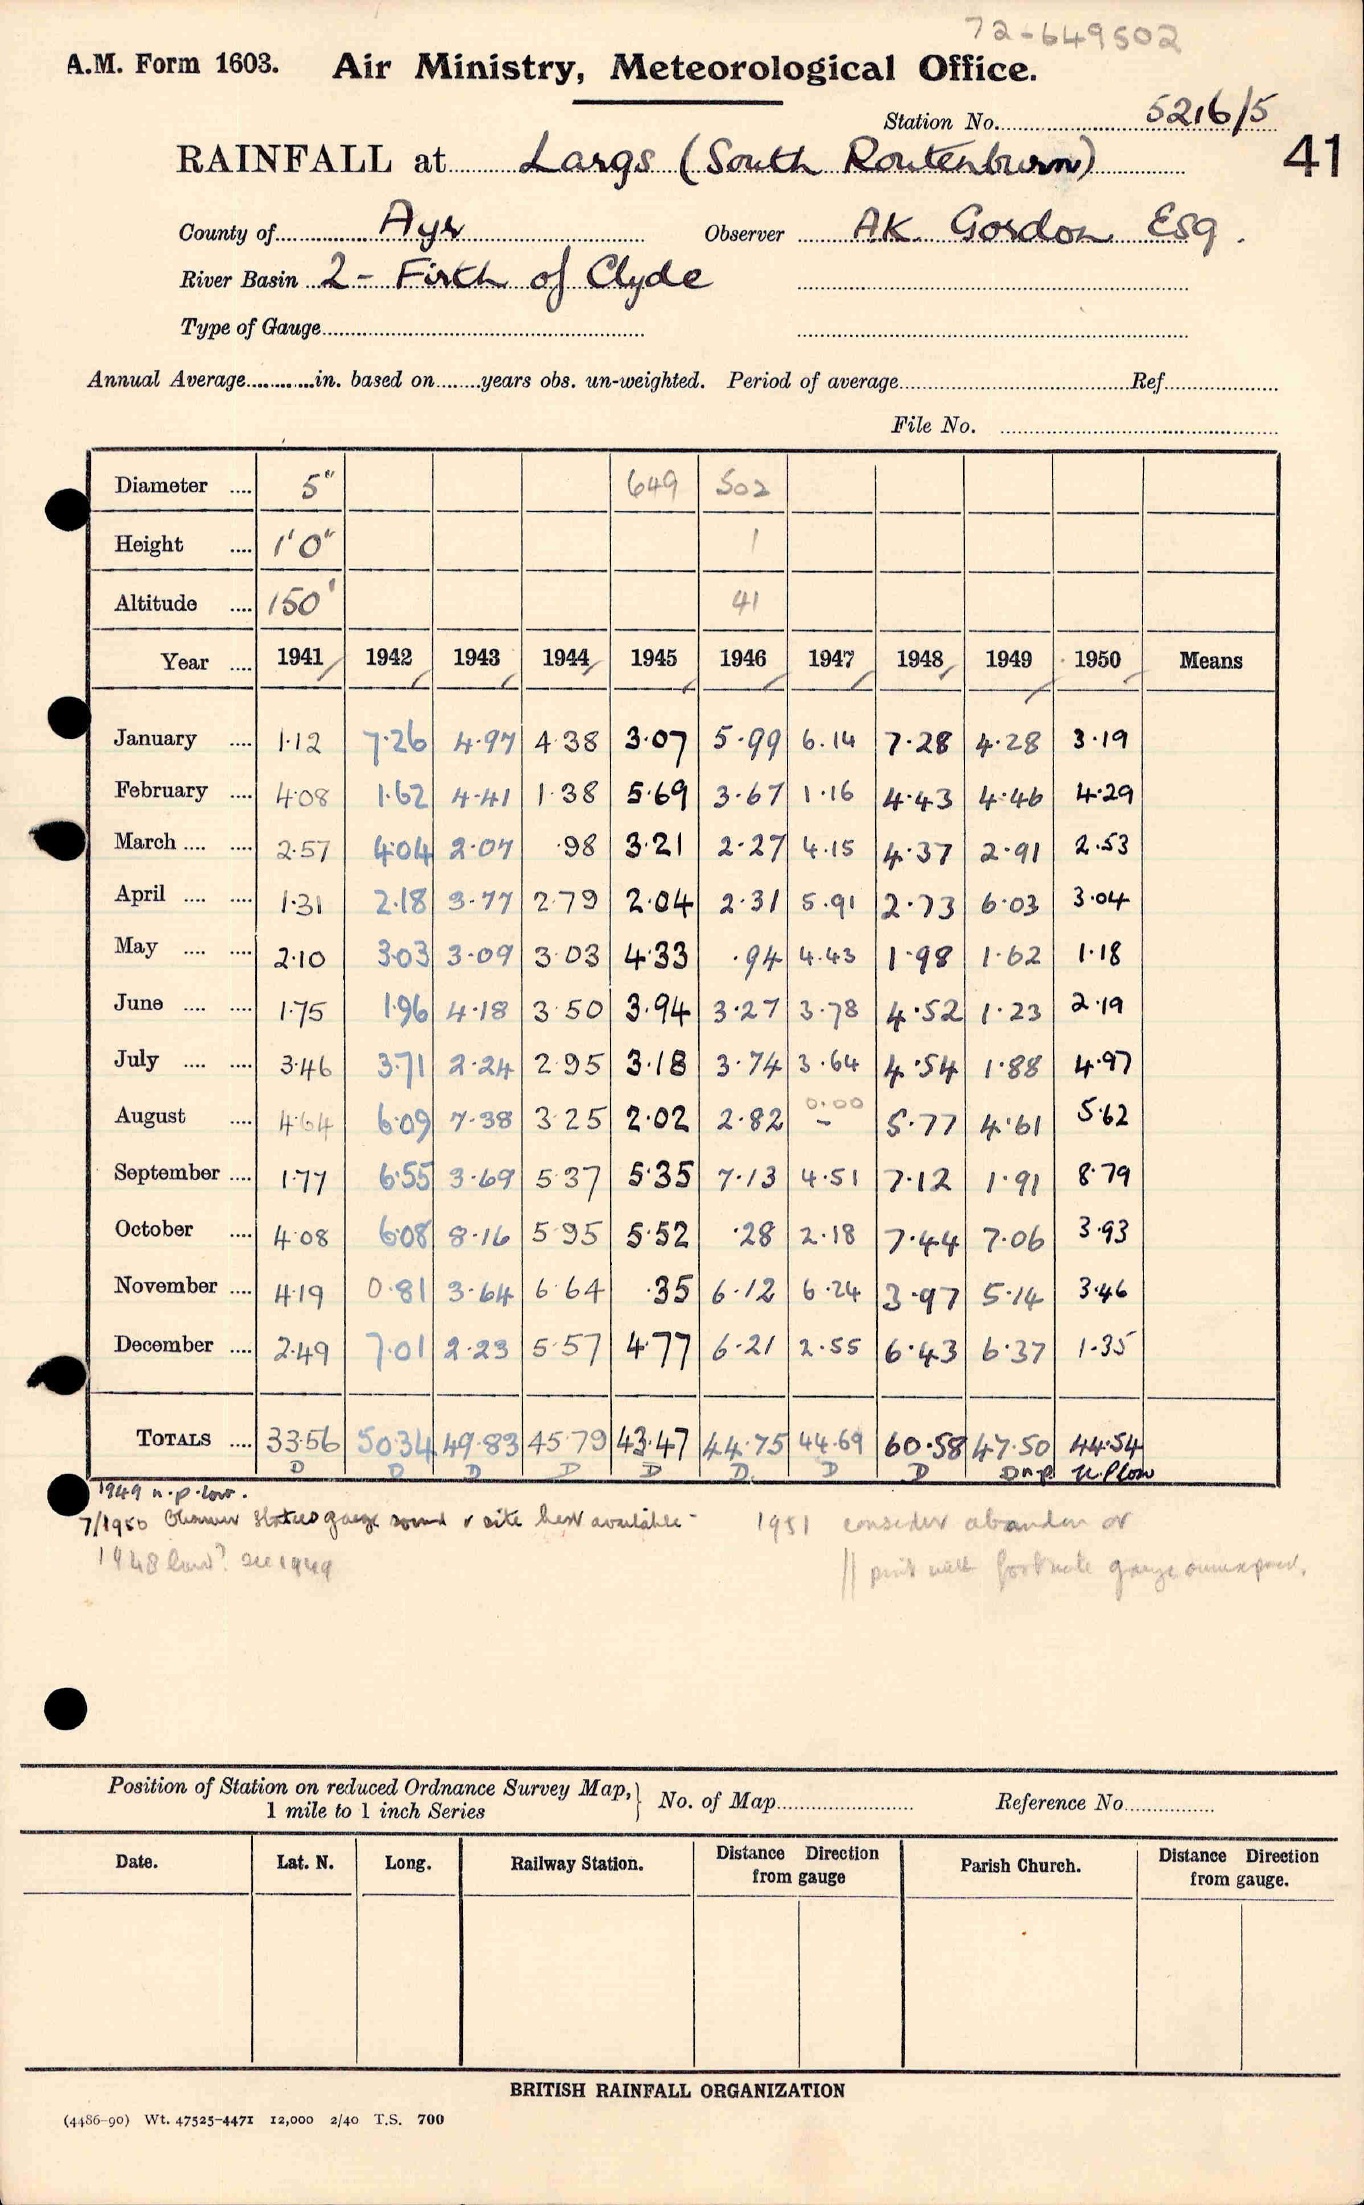 72-649502
A.M. Form 1603. Air Ministry, Meteorological Office.
Station No. 5216/5
RAINFALL at Largs (South Routenburn) 41
County of Ayr Observer A.K. Gordon Esq.
River Basin 2 - Firth of Clyde
Type of Gauge
Annual Average in. based on years obs. un-weighted. Period of average Ref.
File No.
Diameter 5" 649 502
Height 1'0" 1
Altitude 150' 41
Year 1941 1942 1943 1944 1945 1946 1947 1948 1949 1950 Means
January 1.12 7.26 4.97 4.38 3.07 5.99 6.14 7.28 4.28 3.19
February 4.08 1.62 4.41 1.38 5.69 3.67 1.16 4.43 4.46 4.29
March 2.57 4.04 2.07 .98 3.21 2.27 4.15 4.37 2.91 2.53
April 1.31 2.18 3.77 2.79 2.04 2.31 5.91 2.73 6.03 3.04
May 2.10 3.03 3.09 3.03 4.33 .94 4.43 1.98 1.62 1.18
June 1.75 1.96 4.18 3.50 3.94 3.27 3.78 4.52 1.23 2.19
July 3.46 3.71 2.24 2.95 3.18 3.74 3.64 4.54 1.88 4.97
August 4.64 6.09 7.38 3.25 2.02 2.82 0.00 - 5.77 4.61 5.62
September 1.77 6.55 3.69 5.37 5.35 7.13 4.51 7.12 1.91 8.79
October 4.08 6.08 8.16 5.95 5.52 .28 2.18 7.44 7.06 3.93
November 4.19 0.81 3.64 6.64 .35 6.12 6.24 3.97 5.14 3.46
December 2.49 7.01 2.23 5.57 4.77 6.21 2.55 6.43 6.37 1.35
TOTALS 33.56 50.34 49.83 45.79 43.47 44.75 44.69 60.58 47.50 44.54
D D D D D D. D D D n.p. n.p low
1949 n.p. low.
7/1950 Observer states gauge sound & site best available - 1951 consider abandon or
1948 low? see 1949 // print with footnote gauge
Position of Station on reduced Ordnance Survey Map, 1 mile to 1 inch Series } No. of Map Reference No.
Date. Lat. N. Long. Railway Station. Distance Direction from gauge Parish Church. Distance Direction from gauge.
BRITISH RAINFALL ORGANIZATION
(4486-90) Wt. 47525-4471 12,000 2/40 T.S. 700